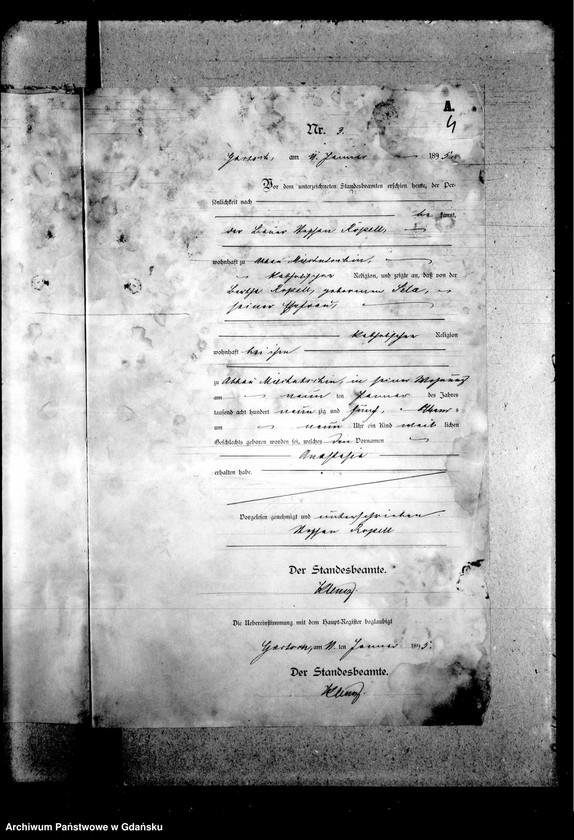 A.
4
Nr. 3.
am 11. Januar 1895.
Vor dem unterzeichneten Standesbeamten erschien heute, der Per-
sönlichkeit nach
be kannt,
der Stephan Kopell,
wohnhaft zu Abbau
katholischer Religion, und zeigte an, daß von der
Kopell, geborenen
seiner Ehefrau,
katholischer Religion
wohnhaft bei ihm
zu Abbau in seiner Wohnung
am neun ten Januar des Jahres
tausend acht hundert neun zig und fünf,
um neun Uhr ein Kind weib lichen
Geschlechts geboren worden sei, welches den Vornamen
Anastasia
erhalten habe.
Vorgelesen, genehmigt und unterschrieben.
Stephan Kopell
Der Standesbeamte.
Die Uebereinstimmung mit dem Haupt-Register beglaubigt
am 11. ten Januar 1895.
Der Standesbeamte.
Archiwum Państwowe w Gdańsku